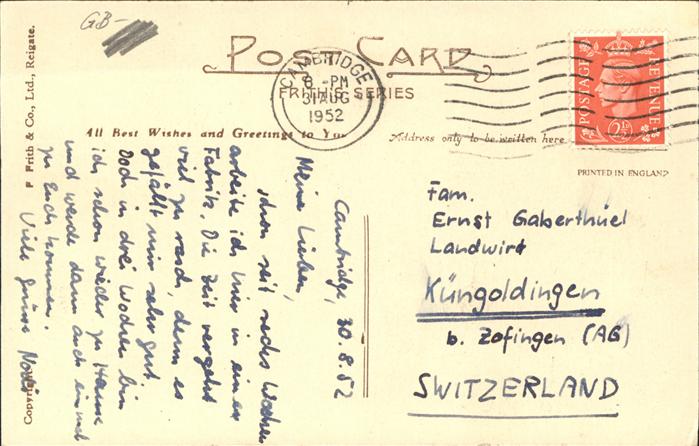 GB-
POST CARD
FRITH'S SERIES
CAMBRIDGE
8 - PM
31 AUG
1952
POSTAGE
REVENUE
2½D
All Best Wishes and Greetings to You
Address only to be written here
PRINTED IN ENGLAND
F Frith & Co., Ltd., Reigate.
Copyright
Cambridge, 30.8.52
Meine Lieben,
schon seit sechs Wochen
arbeite ich hier in einer
Fabrik. Die Zeit vergeht
viel zu rasch, denn es
gefällt mir sehr gut.
Doch in drei Wochen bin
ich schon wieder zu Hause
und werde dann auch einmal
zu Euch kommen.
Viele Grüsse
Fam.
Ernst Gaberthüel
Landwirt
Küngoldingen
b. Zofingen (AG)
SWITZERLAND